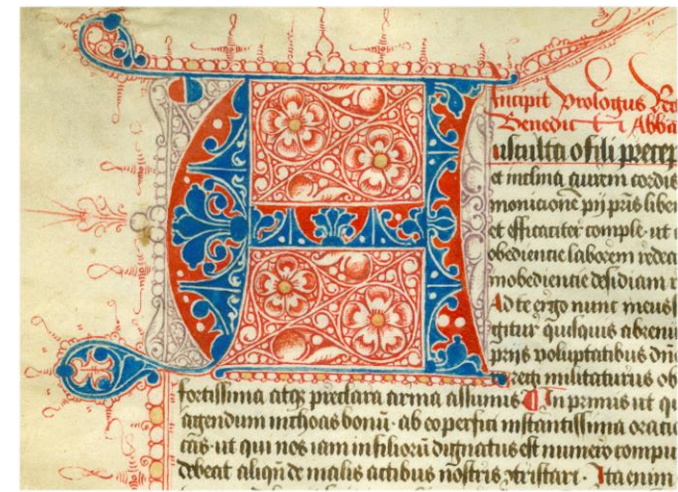 Incipit Prologus Re
Benedicti Abba
Ausculta o fili precep
et inclina aurem cordis
monicione pij pris liben
et efficaciter comple ut
obediencie laborem redea
inobediencie desidiam r
Ad te ergo nunc meus
gitur quisquis abrenu
prijs voluptatibus dno
regi militaturus ob
fortissima atq preclara arma assumis In primis ut q
agendum inchoas bonu ab eo perfici instantissima oracio
cas ut qui nos iam in filioru dignatus est numero compu
debeat aliqn de malis actibus nostris contristari Ita enim